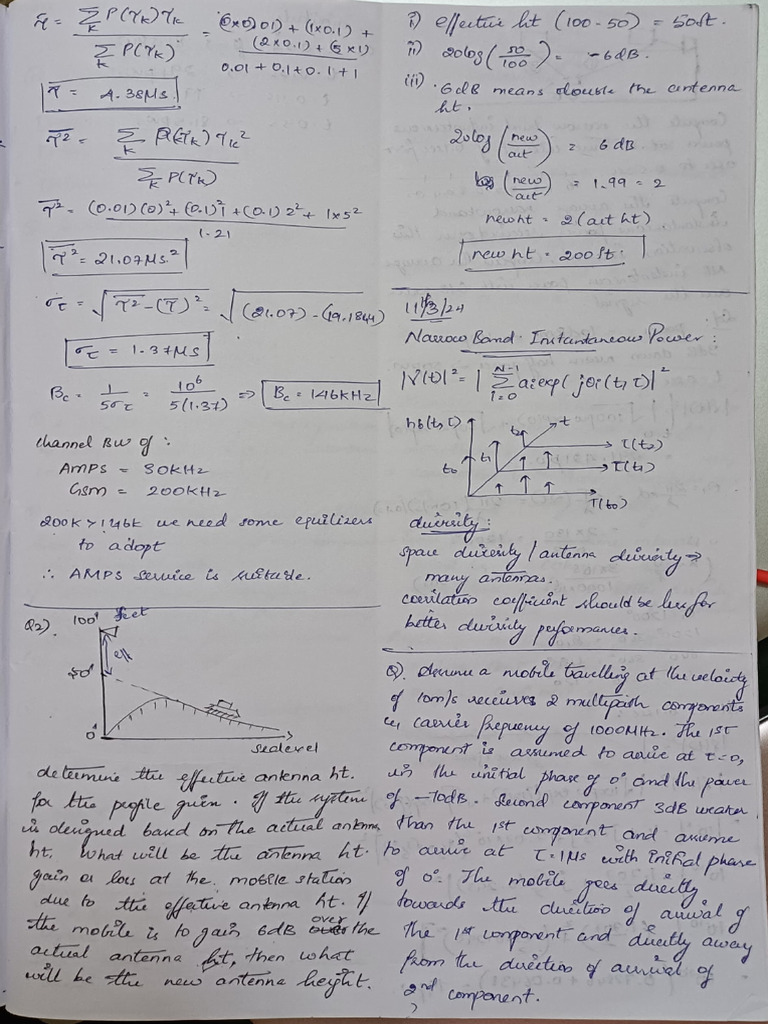 τ̄ = Σ_k P(τ_k) τ_k / Σ_k P(τ_k) = (0×0.01) + (1×0.1) + (2×0.1) + (5×1) / 0.01+0.1+0.1+1
τ̄ = 4.38μs
τ̄² = Σ_k P(τ_k) τ_k² / Σ_k P(τ_k)
τ̄² = (0.01)(0)² + (0.1)²1 + (0.1)2² + 1×5² / 1.21
τ̄² = 21.07μs²
σ_τ = √(τ̄² - (τ̄)²) = √((21.07) - (19.1844))
σ_τ = 1.37μs
B_c = 1/5σ_τ = 10⁶/5(1.37) => B_c = 146kHz
channel BW of :
AMPS = 30KHz
GSM = 200KHz
200K > 146K we need some equilizers
to adopt
∴ AMPS service is suitude.
Q2).
100' feet
eff
50'
0'
sealevel
determine the effective antenna ht.
for the profile given. If the system
is designed based on the actual antenna
ht. What will be the antenna ht.
gain or loss at the mobile station
due to the effective antenna ht. If
the mobile is to gain 6dB over the
actual antenna ht, then what
will be the new antenna height.
i) effective ht (100-50) = 50ft.
ii) 20log(50/100) = -6dB.
iii) 6dB means double the antenna
ht.
20log(new/act) = 6dB
(new/act) = 1.99 = 2
new ht = 2(act ht)
new ht = 200ft.
11/3/24
Narrow Band Instantaneous Power :
|V(t)|² = | Σ_{i=0}^{N-1} ai exp(jθi(t,τ)|²
hb(t,τ)
t
t2
τ(t2)
t1
τ(t1)
t0
τ(t0)
diversity :
space diversity / antenna diversity →
many antennas.
corrilation coefficient should be less for
better diversity performances.
Q). Assume a mobile travelling at the velocity
of 10m/s receives 2 multipath components
carrier frequency of 1000MHz. The 1ST
component is assumed to arrive at τ=0,
the initial phase of 0° and the power
of -70dB. Second component 3dB weaker
than the 1st component and assume
to arrive at τ=1μs with initial phase
of 0°. The mobile goes directly
towards the direction of arrival of
the 1st component and directly away
from the direction of arrival of
2nd component.